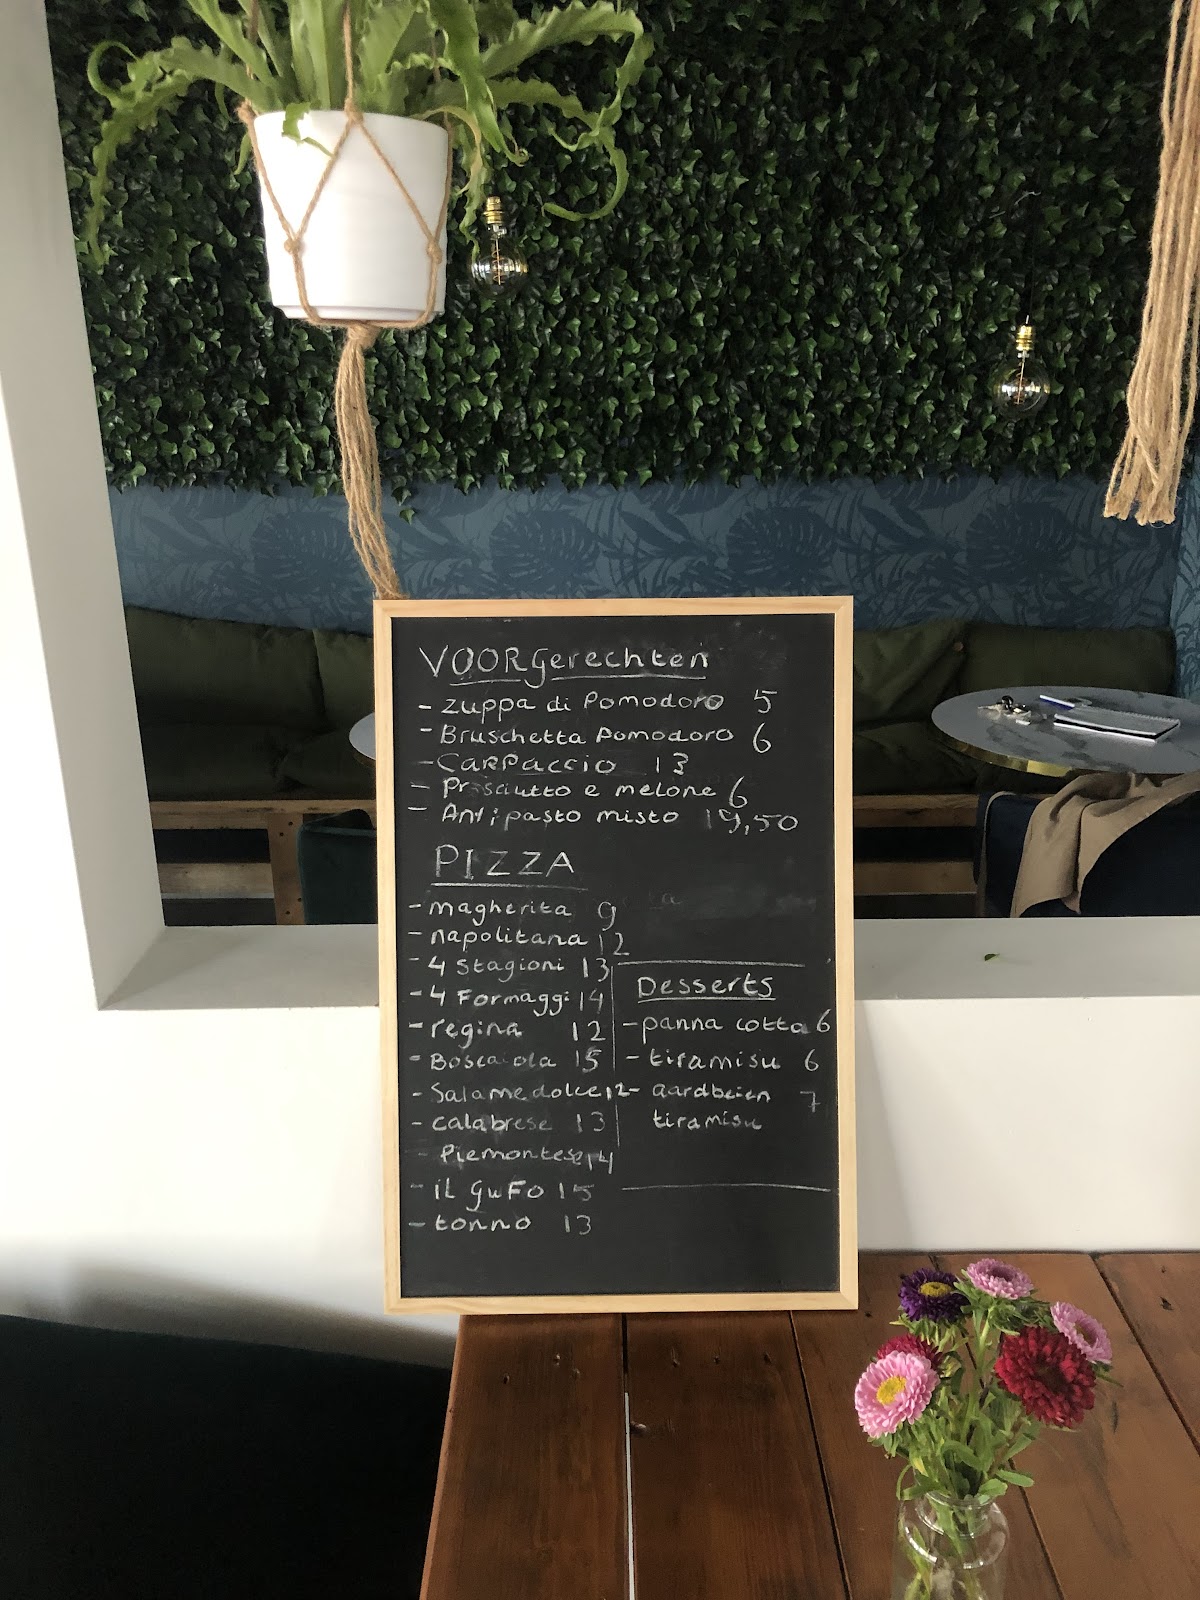 VOORgerechten
- zuppa di Pomodoro 5
- Bruschetta Pomodoro 6
- CARPaccio 13
- Prosciutto e melone 6
- Antipasto misto 19,50
PIZZA
- magherita 9
- napolitana 12
- 4 Stagioni 13
- 4 Formaggi 14
- regina 12
- Boscaiola 15
- Salame dolce 12
- Calabrese 13
- Piemontese 14
- iL GuFo 15
- tonno 13
Desserts
- panna cotta 6
- tiramisu 6
- aardbeien 7
tiramisu